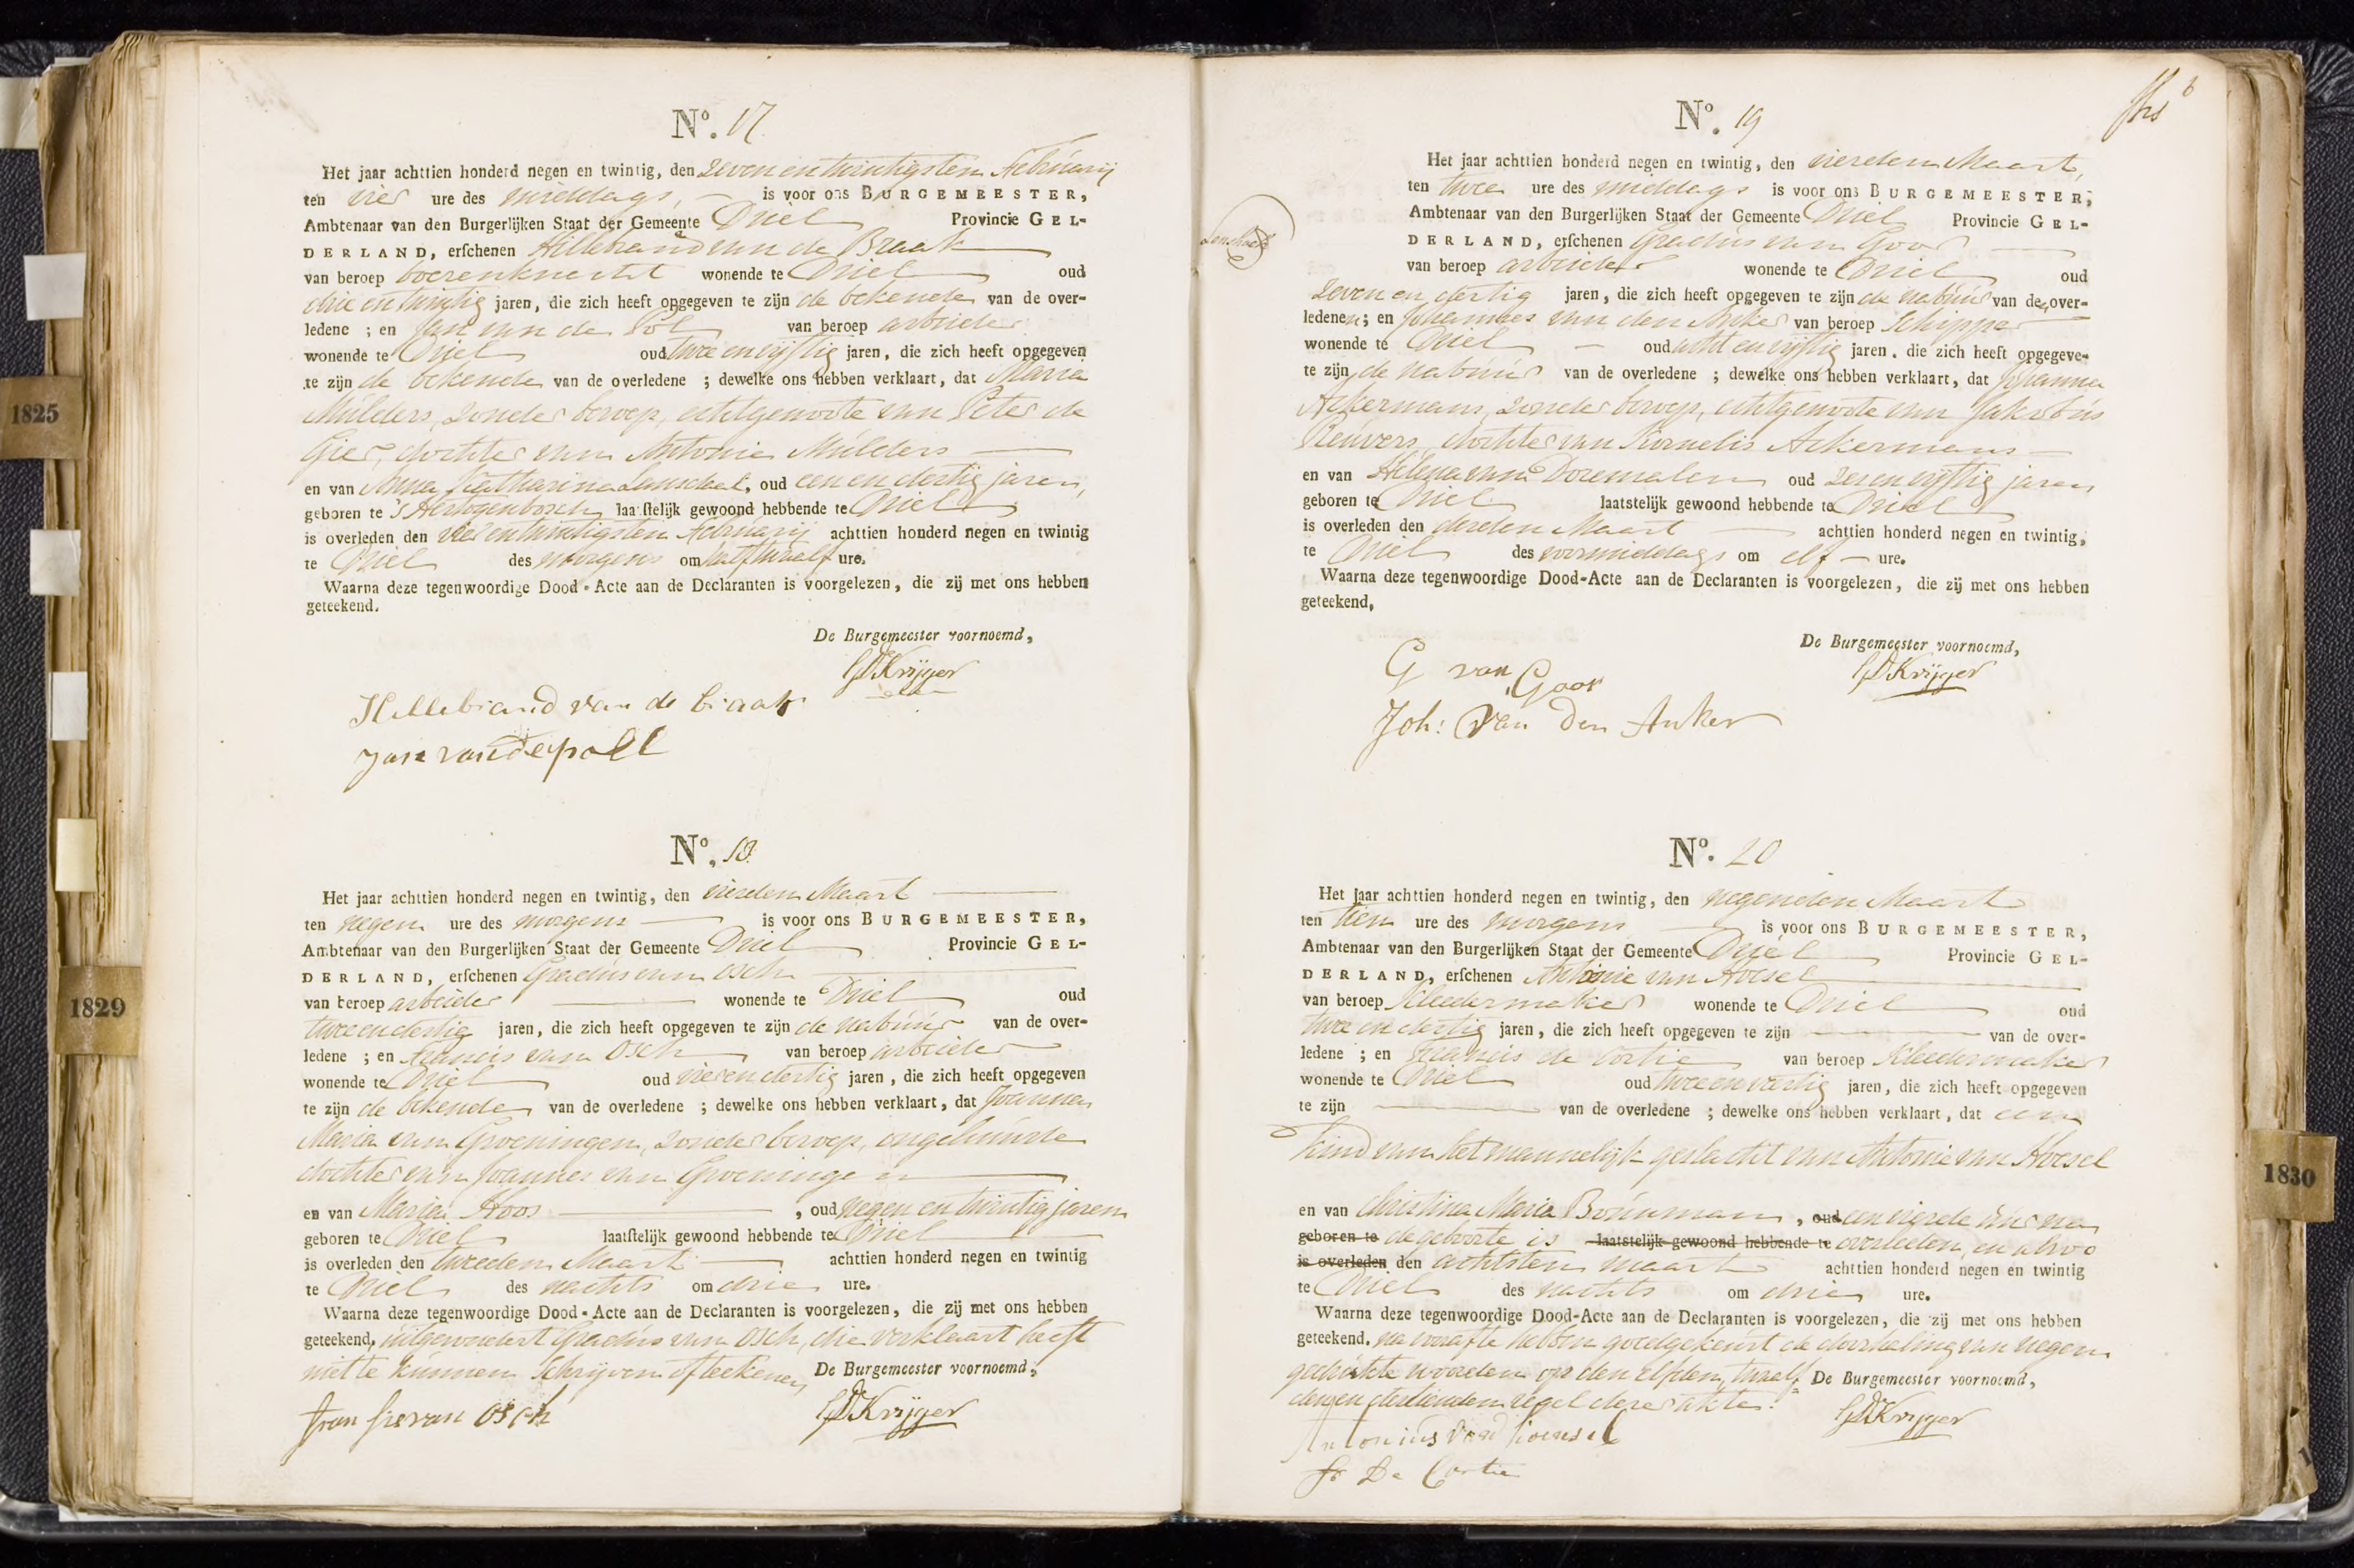 1825
1829
N.º 17
Het jaar achttien honderd negen en twintig, den zeven en twintigsten Februarij
ten vier ure des middags, is voor ons BURGEMEESTER,
Ambtenaar van den Burgerlijken Staat der Gemeente Driel Provincie GEL-
DERLAND, erschenen Hillebrand van de Braak
van beroep boerenknecht wonende te Driel oud
drie en twintig jaren, die zich heeft opgegeven te zijn de bekende van de over-
ledene ; en Jan van de Pol van beroep arbeider
wonende te Driel oud twee en vijftig jaren, die zich heeft opgegeven
te zijn de bekende van de overledene ; dewelke ons hebben verklaart, dat Maria
Mulders, zonder beroep, echtgenoote van Peter de
Gier, dochter van Antonie Mulders
en van Anna Catharina Lanschaet, oud een en dertig jaren,
geboren te 's Hertogenbosch laatstelijk gewoond hebbende te Driel
is overleden den vier en twintigsten Februarij achttien honderd negen en twintig
te Driel des morgens om half twaalf ure.
Waarna deze tegenwoordige Dood-Acte aan de Declaranten is voorgelezen, die zij met ons hebben
geteekend.
De Burgemeester voornoemd,
GDKrijger
Hillebrand van de braak
Jan van de poll
N.º 18
Het jaar achttien honderd negen en twintig, den vierden Maart
ten negen ure des morgens is voor ons BURGEMEESTER,
Ambtenaar van den Burgerlijken Staat der Gemeente Driel Provincie GEL-
DERLAND, erschenen Gradus van Osch
van beroep arbeider wonende te Driel oud
twee en dertig jaren, die zich heeft opgegeven te zijn de nabuur van de over-
ledene ; en Francis van Osch van beroep arbeider
wonende te Driel oud vier en dertig jaren, die zich heeft opgegeven
te zijn de bekende van de overledene ; dewelke ons hebben verklaart, dat Joanna
Maria van Groeningen, zonder beroep, ongehuwde
dochter van Joannes van Groeningen
en van Maria Hoos, oud negen en twintig jaren
geboren te Driel laatstelijk gewoond hebbende te Driel
is overleden den tweeden Maart achttien honderd negen en twintig
te Driel des nachts om drie ure.
Waarna deze tegenwoordige Dood-Acte aan de Declaranten is voorgelezen, die zij met ons hebben
geteekend, uitgezondert Gradus van Osch, die verklaart heeft
niet te kunnen schrijven of teekenen
De Burgemeester voornoemd,
GDKrijger
fran sis van Osch
N.º 19
Het jaar achttien honderd negen en twintig, den vierden Maart,
ten twee ure des middags is voor ons BURGEMEESTER,
Ambtenaar van den Burgerlijken Staat der Gemeente Driel Provincie GEL-
DERLAND, erschenen Gradus van Goor
van beroep arbeider wonende te Driel oud
zeven en dertig jaren, die zich heeft opgegeven te zijn de nabuur van de over-
ledenen; en Johannes van den Anker van beroep Schipper
wonende te Driel oud acht en vijftig jaren, die zich heeft opgegeve-
te zijn de nabuur van de overledene ; dewelke ons hebben verklaart, dat Johanna
Ackermans, zonder beroep, echtgenoote van Jakobus
Reuvers, dochter van Kornelis Ackermans
en van Helena van Doremalen oud zes en vijftig jaren
geboren te Driel laatstelijk gewoond hebbende te Driel
is overleden den derden Maart achttien honderd negen en twintig,
te Driel des voormiddags om elf ure.
Waarna deze tegenwoordige Dood-Acte aan de Declaranten is voorgelezen, die zij met ons hebben
geteekend,
De Burgemeester voornoemd,
GDKrijger
G van Goor
Joh: Van Den Anker
N.º 20
Het jaar achttien honderd negen en twintig, den negenden Maart
ten tien ure des morgens is voor ons BURGEMEESTER,
Ambtenaar van den Burgerlijken Staat der Gemeente Driel Provincie GEL-
DERLAND, erschenen Antonie van Hoesel
van beroep Kleedermaker wonende te Driel oud
twee en dertig jaren, die zich heeft opgegeven te zijn van de over-
ledene ; en Francis de Cortie van beroep Kleedermaker
wonende te Driel oud twee en veertig jaren, die zich heeft opgegeven
te zijn van de overledene ; dewelke ons hebben verklaart, dat een
kind van het mannelijk geslacht van Antonie van Hoesel
en van Christina Maria Bouwman, oud een vierde uur na
geboren te de geboorte is laatstelijk gewoond hebbende te overleden, en alzoo
is overleden den achtsten maart achttien honderd negen en twintig
te Driel des nachts om drie ure.
Waarna deze tegenwoordige Dood-Acte aan de Declaranten is voorgelezen, die zij met ons hebben
geteekend. na vooraf te hebben goedgekeurt de doorhaling van negen
gedrukte woorden op den elfden, twaalf
den en dertienden regel dezer akte.
De Burgemeester voornoemd,
GDKrijger
Antonius van hoessel
fr De Cortie
1830